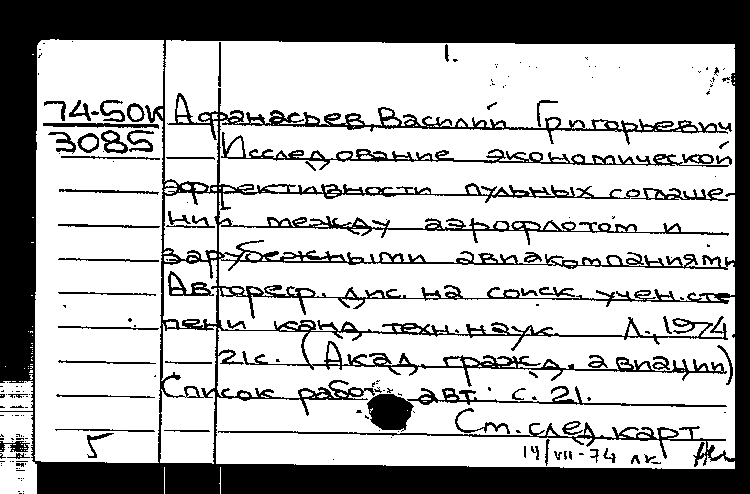 1.
74-50к Афанасьев, Василий Григорьевич
3085 Исследование экономической
эффективности пульных соглаше-
ний между аэрофлотом и
зарубежными авиакомпаниями
Автореф. дис. на соиск. учен. сте-
пени канд. техн. наук. Л., 1974.
21с. (Акад. гражд. авиации)
Список работ авт.: с. 21.
Ст. след. карт.
5 14/VII-74 лк